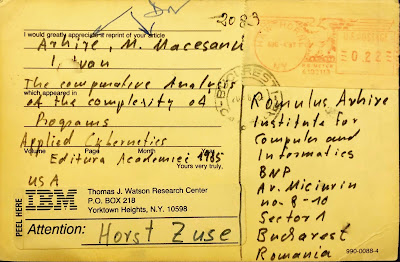 2083
I would greatly appreciate a reprint of your article
Arhire, M. Macesanu
I, Ivan
The comparative Analysis
which appeared in
of the complexity of
Programs
Applied Cybernetics
Volume Page Month Year
Editura Academiei 1985
Yours very truly,
USA
PEEL HERE
IBM
Thomas J. Watson Research Center
P.O. BOX 218
Yorktown Heights, N.Y. 10598
Attention: Horst Zuse
0.22
BUCUREST
Romulus Arhire
Institute for
Computer and
Informatics
BNP
Av. Miciurin
no. 8-10
Sector 1
Bucharest
Romania
990-0088-4